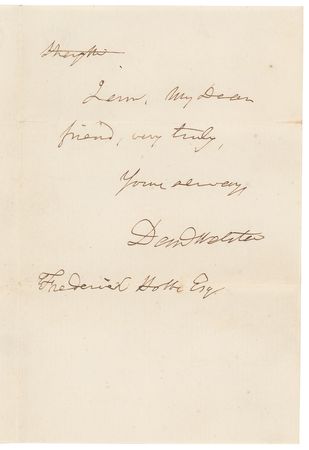 I am, My Dear
friend, very truly,
Yours always,
Danl Webster
Frederick Hobbs Esq